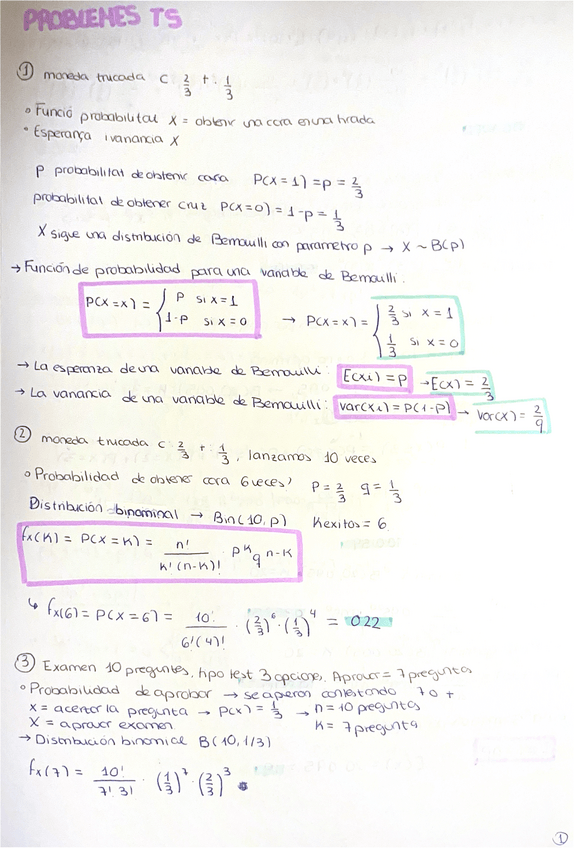 PROBLEMES TS
① moneda trucada C: 2/3 +: 1/3
° Funció probabilitat X = obtenir una cara en una tirada
° Esperança i variancia X
P probabilitat de obtenir cara P(X=1) = p = 2/3
probabilitat de obtener cruz P(X=0) = 1-p = 1/3
X sigue una distribución de Bernouilli con parámetro p → X ~ B(p)
→ Función de probabilidad para una variable de Bernouilli.
P(X=x) = { p si x=1
1-p si x=0
→ P(X=x) = { 2/3 si x=1
1/3 si x=0
→ La esperanza de una variable de Bernouilli: E(xi) = p → E(x) = 2/3
→ La variancia de una variable de Bernouilli: var(xi) = p(1-p) → var(x) = 2/9
② moneda trucada C: 2/3 +: 1/3, lanzamos 10 veces
° Probabilidad de obtener cara 6 veces? P = 2/3 q = 1/3
Distribución binominal → Bin(10,p) K exitos = 6
fx(K) = P(X=K) = n! / K!(n-K)! · p^K q^n-K
↳ fx(6) = P(X=6) = 10! / 6!(4)! · (2/3)^6 · (1/3)^4 = 0'22
③ Examen 10 preguntes, tipo test 3 opciones, Aprovar = 7 pregunta
° Probabilidad de aprobar → se aperon contestando 7 o +
x = acertar la pregunta → P(x) = 1/3 → n = 10 preguntas
X = aprovar examen K = 7 pregunta
→ Distribución binomial B(10, 1/3)
fx(7) = 10! / 7! 3! · (1/3)^7 · (2/3)^3
①